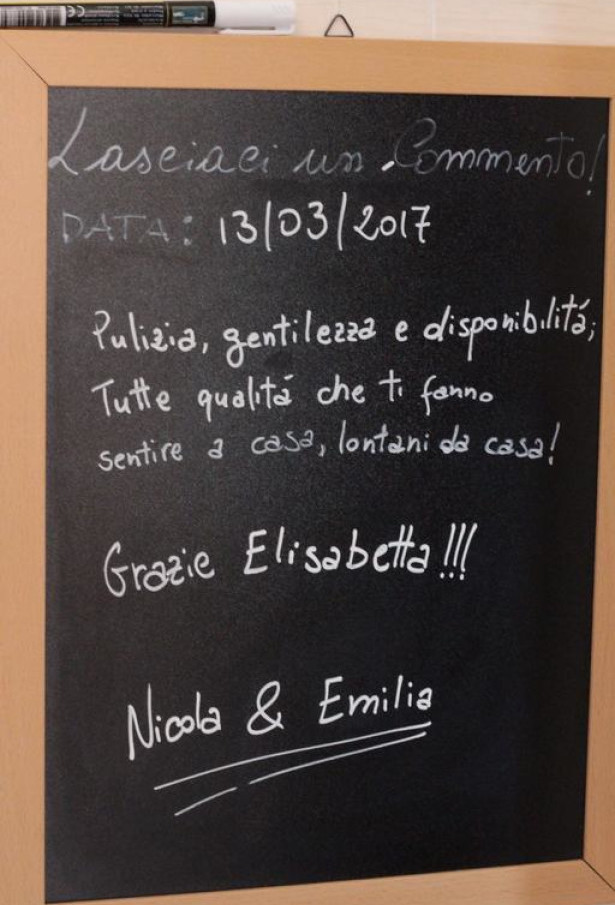 Lasciaci un Commento!
DATA: 13/03/2017
Pulizia, gentilezza e disponibilitá;
Tutte qualitá che ti fanno
sentire a casa, lontani da casa!
Grazie Elisabetta!!!
Nicola & Emilia